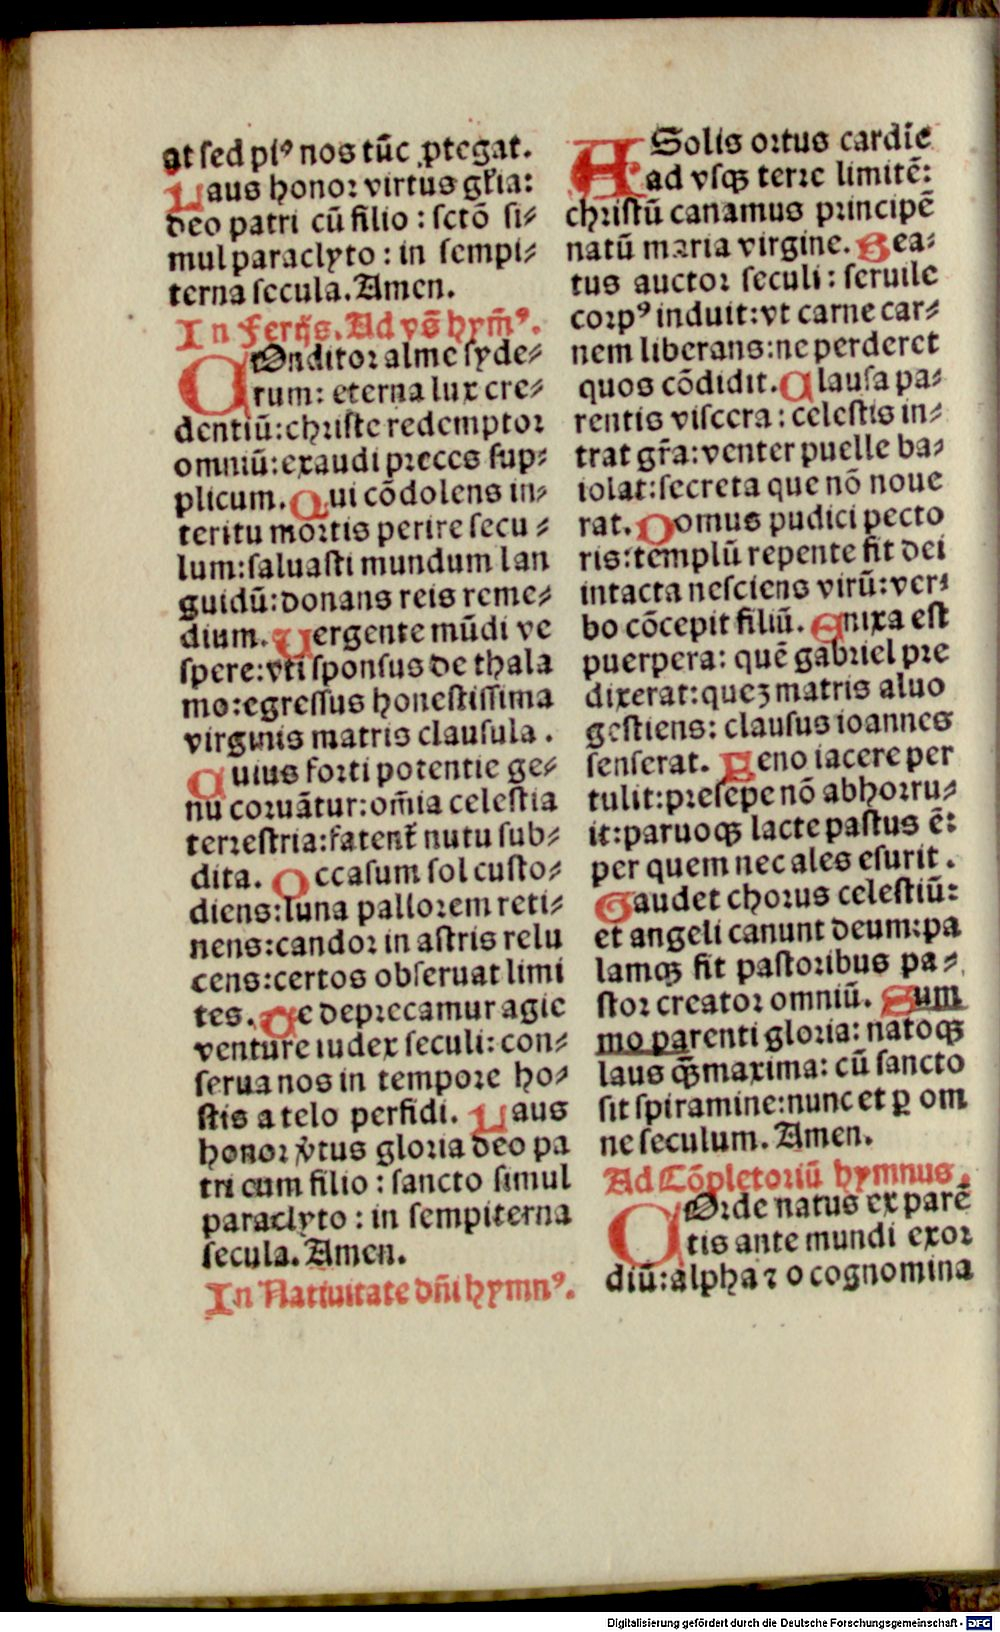 at sed piꝰ nos tūc ꝓtegat.
Laus honor virtus gl̄ia:
deo patri cū filio : sctō si⸗
mul paraclyto : in sempi⸗
terna secula. Amen.
In ferijs. Ad vs̄ hym̄ꝰ.
COnditor alme syde⸗
rum: eterna lux cre⸗
dentiū: christe redemptor
omniū: exaudi preces sup⸗
plicum. Qui cōdolens in⸗
teritu mortis perire secu⸗
lum: saluasti mundum lan
guidū: donans reis reme⸗
dium. Uergente mūdi ve
spere: vti sponsus de thala
mo: egressus honestissima
virginis matris clausula.
Cuius forti potentie ge⸗
nu coruātur: om̄ia celestia
terrestria: fatent᷑ nutu sub⸗
dita. Occasum sol custo⸗
diens: luna pallorem reti⸗
nens: candor in astris relu
cens: certos obseruat limi
tes. Te deprecamur agie
venture iudex seculi: con⸗
serua nos in tempore ho⸗
stis a telo perfidi. Laus
honor v̾tus gloria deo pa
tri cum filio : sancto simul
paraclyto : in sempiterna
secula. Amen.
In Natiuitate dn̄i hymnꝰ.
A Solis ortus cardīe
ad vsqꝫ terre limitē:
christū canamus principē
natū maria virgine. Bea⸗
tus auctor seculi: seruile
corpꝰ induit: vt carne car⸗
nem liberans: ne perderet
quos cōdidit. Clausa pa⸗
rentis viscera: celestis in⸗
trat gr̄a: venter puelle ba⸗
iolat: secreta que nō noue
rat. Domus pudici pecto
ris: templū repente fit dei
intacta nesciens virū: ver⸗
bo cōcepit filiū. Enixa est
puerpera: quē gabriel pre
dixerat: queꝫ matris aluo
gestiens: clausus ioannes
senserat. Feno iacere per
tulit: presepe nō abhorru⸗
it: paruoqꝫ lacte pastus ē:
per quem nec ales esurit.
Gaudet chorus celestiū:
et angeli canunt deum: pa
lamqꝫ fit pastoribus pa⸗
stor creator omniū. Sum
mo parenti gloria: natoqꝫ
laus qꝫ̄ maxima: cū sancto
sit spiramine: nunc et ꝑ om
ne seculum. Amen.
Ad Cōpletoriū hymnus.
COrde natus ex parē
tis ante mundi exor
diū: alpha ⁊ o cognomina
Digitalisierung gefördert durch die Deutsche Forschungsgemeinschaft - DFG